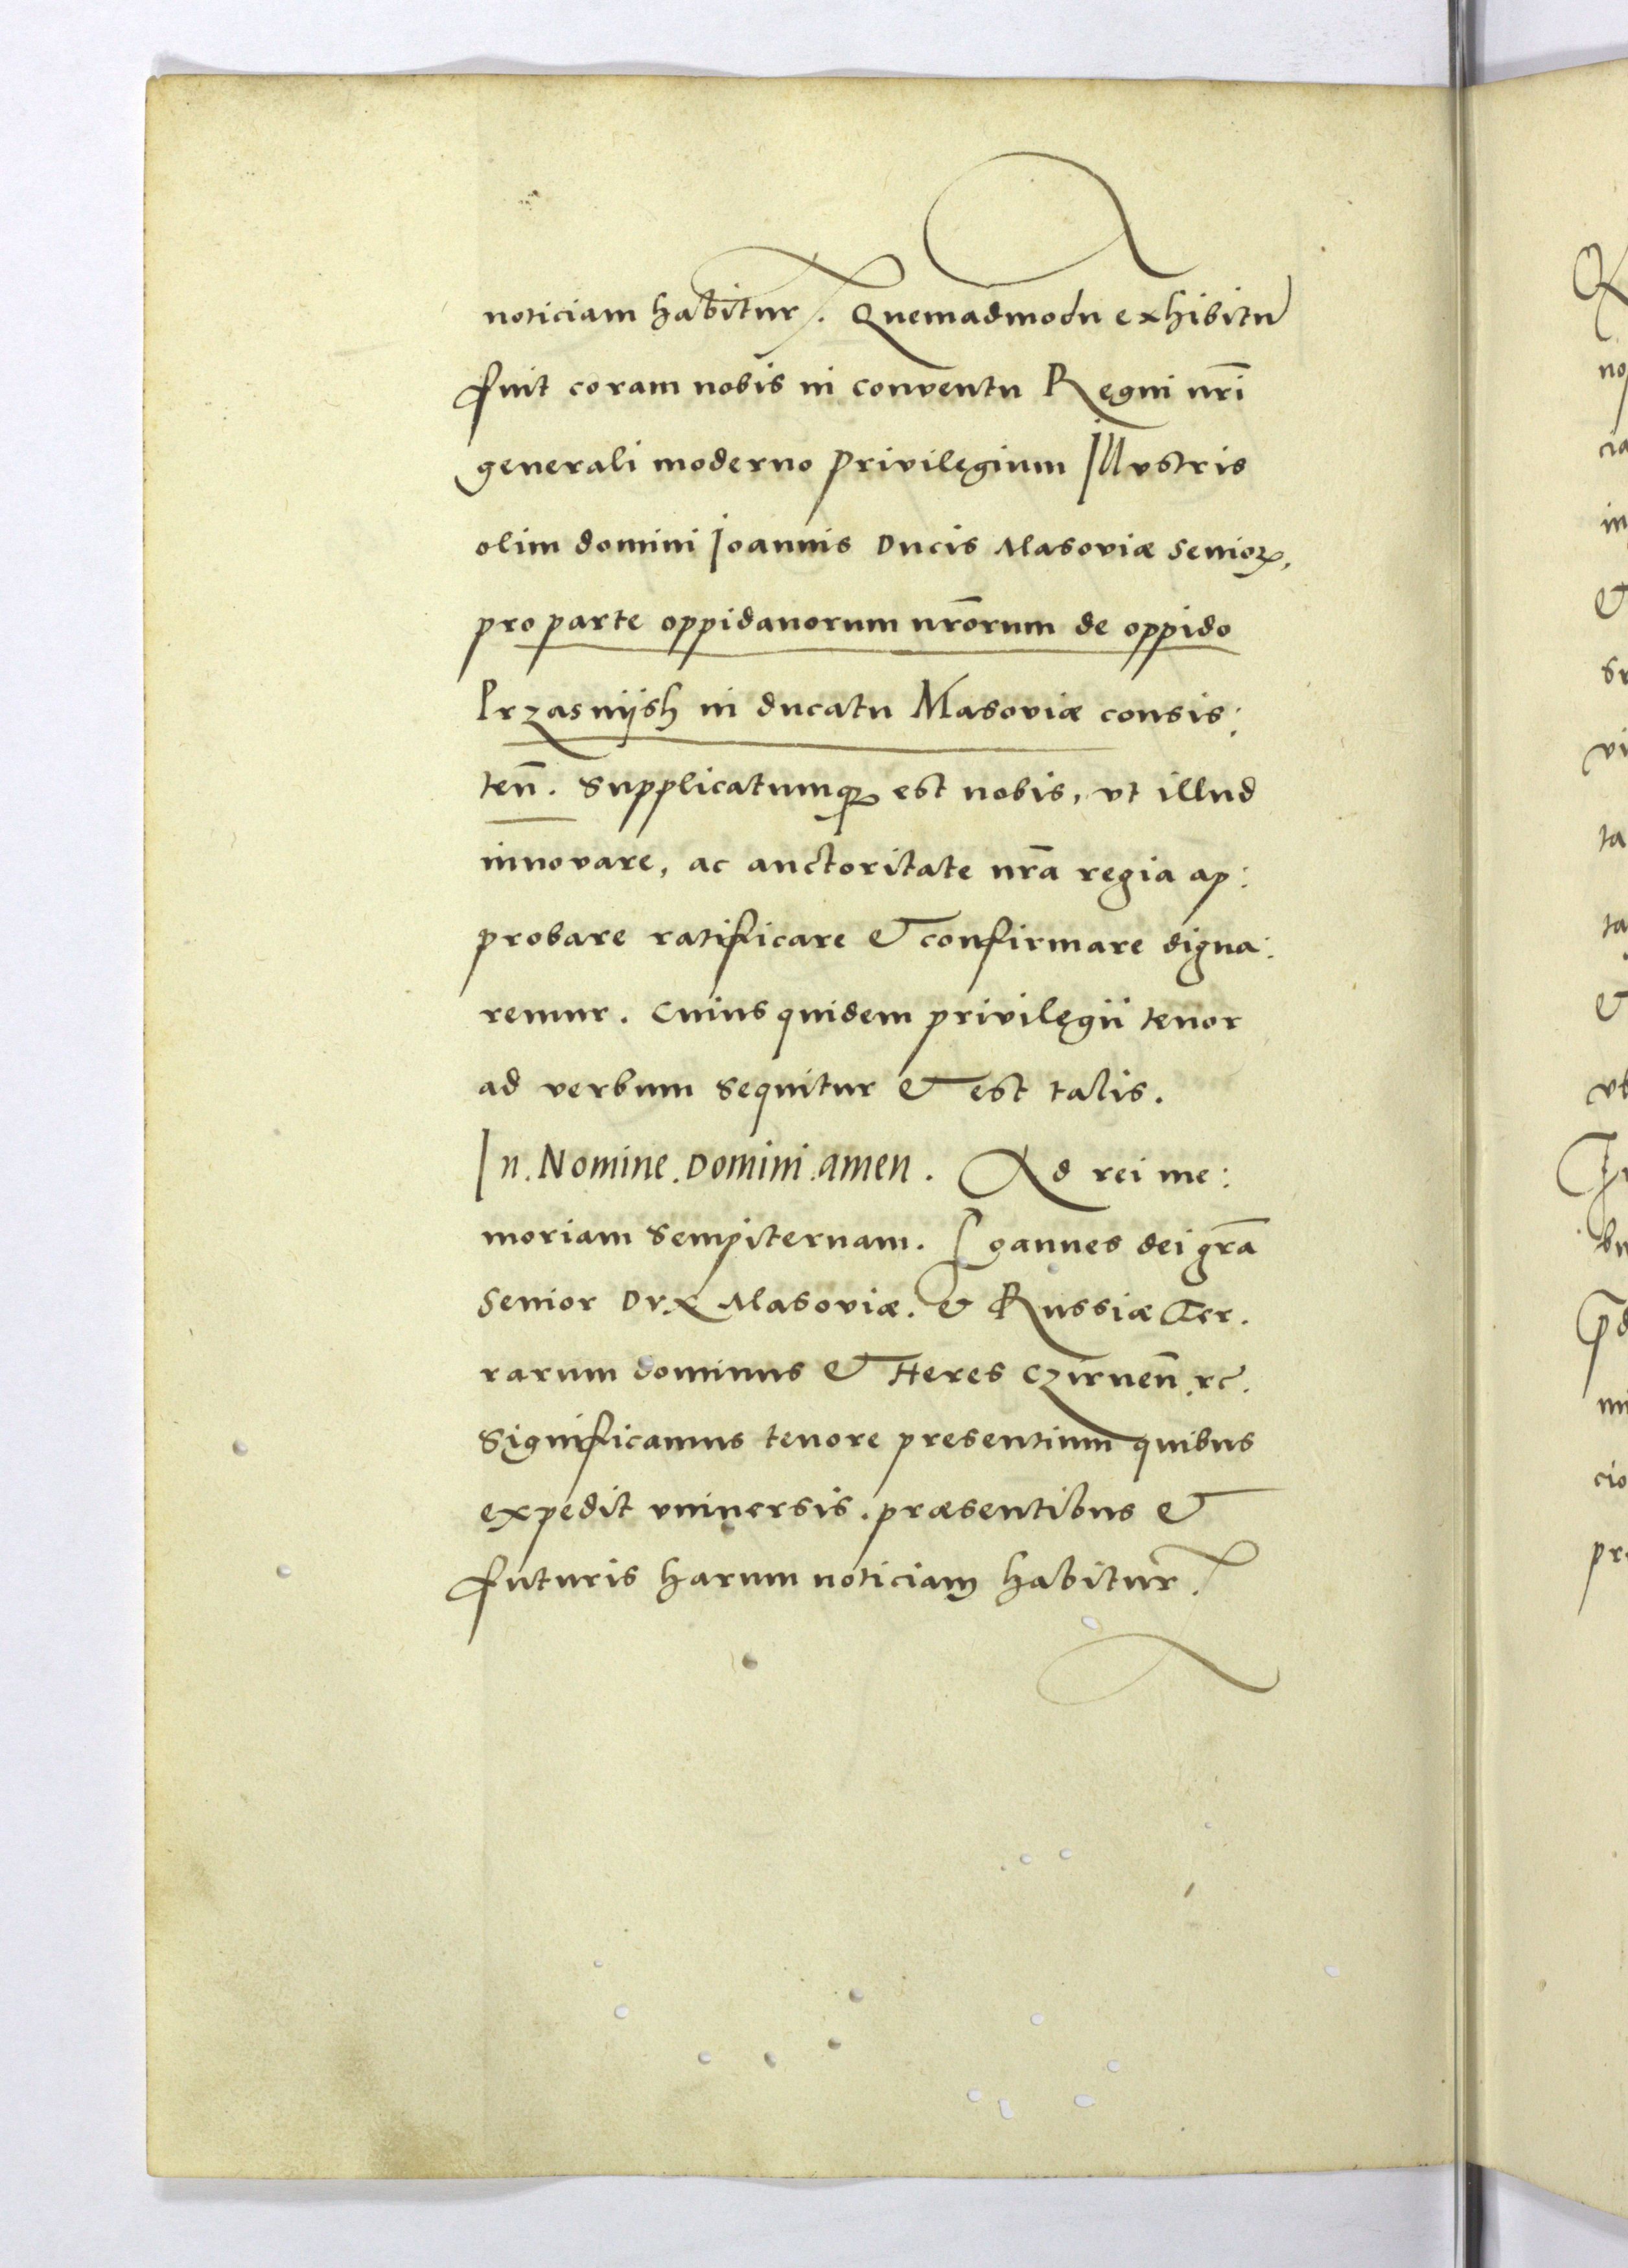 noticiam habitur̃. Quemadmodũ exhibitũ
fuit coram nobis in conventu Regni nr̃i
generali moderno privilegium Illvstris
olim domini Ioannis Ducis Masoviæ Senioꝝ,
pro parte oppidanorum nr̃orum de oppido
Przasnijsh in ducatu Masoviæ consis:
ten̄. Supplicatumqꝫ est nobis, vt illud
innovare, ac auctoritate nr̃a regia ap:
probare ratificare & confirmare digna:
remur. Cuius quidem privilegii tenor
ad verbum sequitur & est talis.
In. Nomine. Domini. amen. Ad rei me:
moriam sempiternam. Ioannes dei gr̃a
Senior Dvx Masoviæ. & Russiæ Ter.
rarum dominus & Heres Czirnen̄. rc̃.
Significamus tenore presentium quibus
expedit vniuersis. præsentibus &
futuris harum noticiam habitur̃.